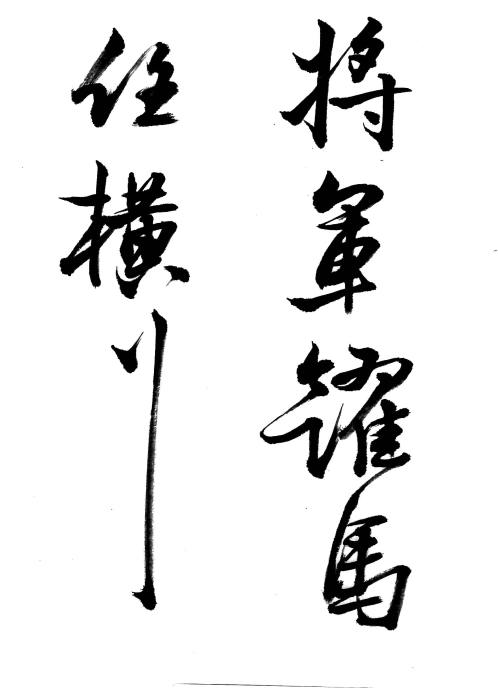 將軍躍馬
任橫行